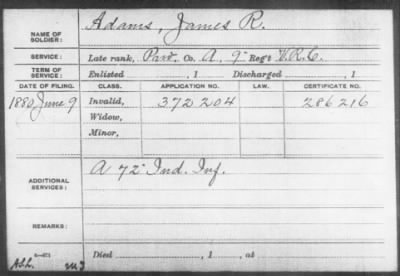 NAME OF SOLDIER: Adams, James R.
SERVICE: Late rank, Co. A, 9" Reg't V.R.C.
TERM OF SERVICE: Enlisted , 1 Discharged , 1
DATE OF FILING. CLASS. APPLICATION NO. LAW. CERTIFICATE NO.
1880, June 9 Invalid, 372204 286216
Widow,
Minor,
ADDITIONAL SERVICES: A 72" Ind. Inf.
REMARKS:
Died , 1 , at